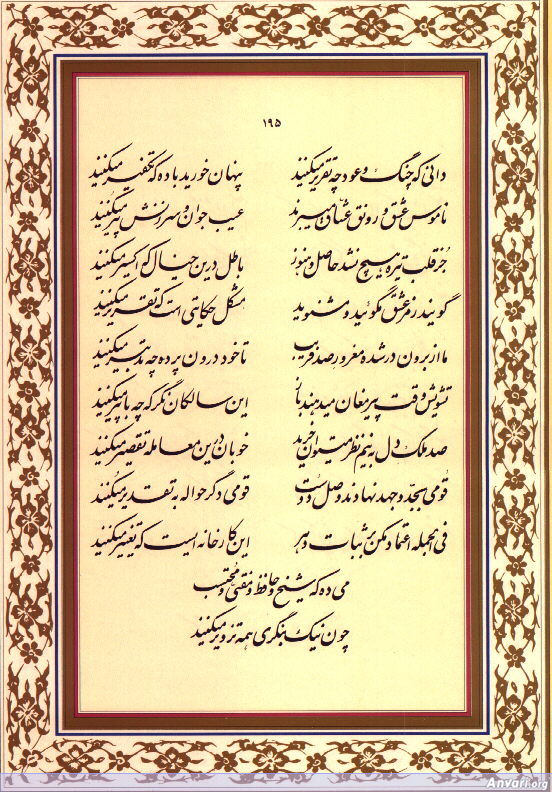 ۱۹۵
دانی که چنگ و عود چه تقریر میکنند پنهان خورید باده که تکفیر میکنند
ناموس عشق و رونق عشاق میبرند عیب جوان و سرزنش پیر میکنند
جز قلب تیره هیچ نشد حاصل و هنوز باطل درین خیال که اکسیر میکنند
گویند رمز عشق مگوئید و مشنوید مشکل حکایتی است که تقریر میکنند
ما از برون در شده مغرور صد فریب تا خود درون پرده چه تدبیر میکنند
تشویش وقت پیر مغان میدهند باز این سالکان نگر که چه با پیر میکنند
صد ملک دل به نیم نظر میتوان خرید خوبان درین معامله تقصیر میکنند
قومی بجد و جهد نهادند وصل دوست قومی دگر حواله به تقدیر میکنند
فی الجمله اعتماد مکن بر ثبات دهر این کارخانه ایست که تغییر میکنند
می ده که شیخ و حافظ و مفتی و محتسب
چون نیک بنگری همه تزویر میکنند
Anvari.org